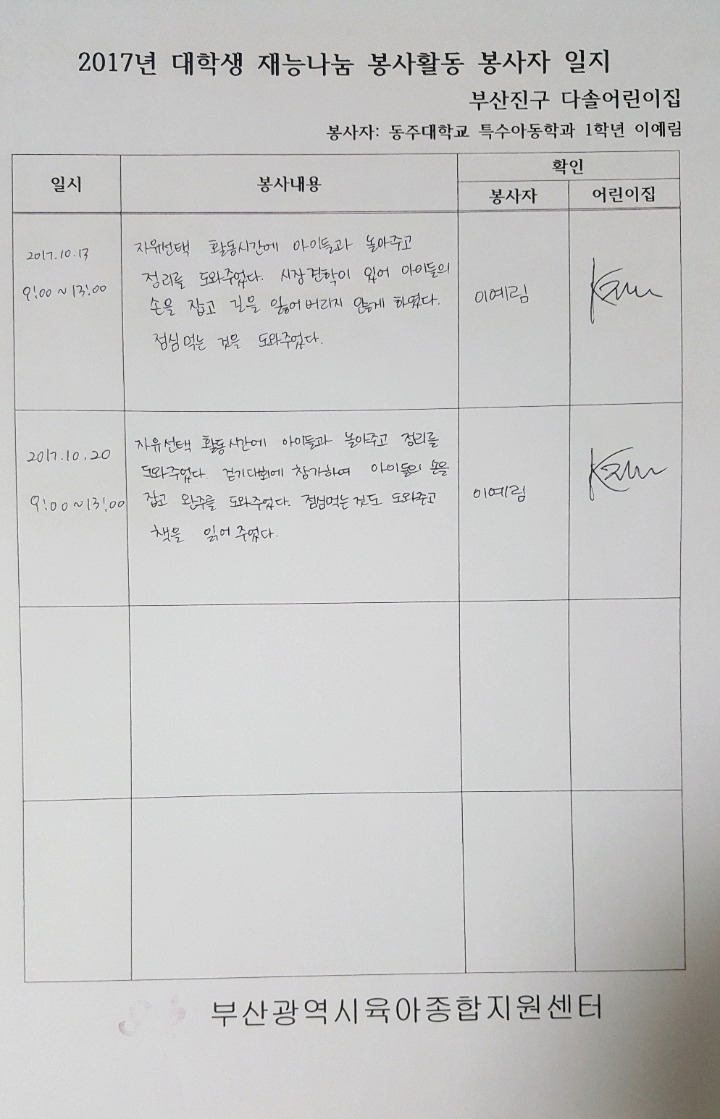 2017년 대학생 재능나눔 봉사활동 봉사자 일지
부산진구 다솔어린이집
봉사자: 동주대학교 특수아동학과 1학년 이예림
일시
봉사내용
확인
봉사자
어린이집
2017.10.13
9:00~13:00
자유선택 활동시간에 아이들과 놀아주고
정리를 도와주었다. 시장견학이 있어 아이들의
손을 잡고 길을 잃어버리지 않게 하였다.
점심먹는 것을 도와주었다.
이예림
2017.10.20
9:00~13:00
자유선택 활동시간에 아이들과 놀아주고 정리를
도와주었다 걷기대회에 참가하여 아이들의 손을
잡고 완주를 도와주었다. 점심먹는것도 도와주고
책을 읽어 주었다.
이예림
부산광역시육아종합지원센터